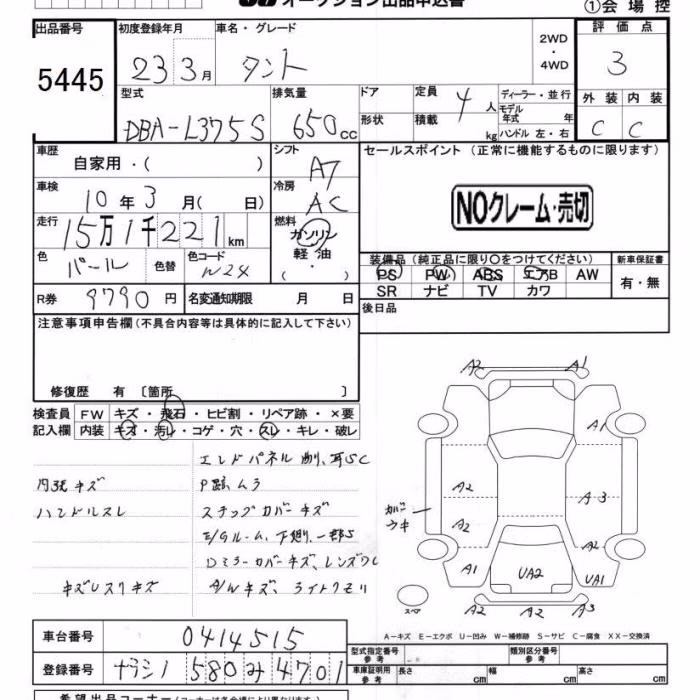 オークション出品申込書
①会場控
出品番号 5445
初度登録年月 23 3月
車名・グレード タント
2WD・4WD
評価点 3
型式 DBA-L375S
排気量 650cc
ドア
形状
定員 4人
積載 kg
ディーラー・並行
モデル年式 年
ハンドル 左・右
外装 内装
C C
車歴 自家用・( )
シフト A7
セールスポイント (正常に機能するものに限ります)
NOクレーム・売切
車検 10年3月(日)
冷房 AC
走行 15万1千221km
燃料 ガソリン・軽油・( )
色 パール
色替
色コード W24
装備品 (純正品に限り○をつけてください)
新車保証書
PS PW ABS エアB AW
有・無
SR ナビ TV カワ
R券 9790円
名変通知期限 月 日
後日品
注意事項申告欄(不具合内容等は具体的に記入して下さい)
修復歴 有〔箇所 〕
検査員記入欄
FW キズ・飛石・ヒビ割・リペア跡・×要
内装 キズ・汚れ・コゲ・穴・スレ・キレ・破レ
エンドパネル
内張キズ
ハンドルスレ
ステップカバーキズ
E/Gルーム、下廻、一部S
Dミラーカバーキズ、レンズワレ
キズUSキズ
A/Wキズ、ライトクモリ
A2 A1
A1
A2 A3
カバーウキ
A2 A2
A1 UA2 UA1
スペア
A2 A2 A3
A-キズ E-エクボ U-凹み W-補修跡 S-サビ C-腐食 XX-交換済
車台番号 0414515
登録番号 ナラシノ 580 み 4701
型式指定番号 参考
類別区分番号 参考
車庫証明用 参考
長さ cm 幅 cm 高さ cm
希望出品コーナー